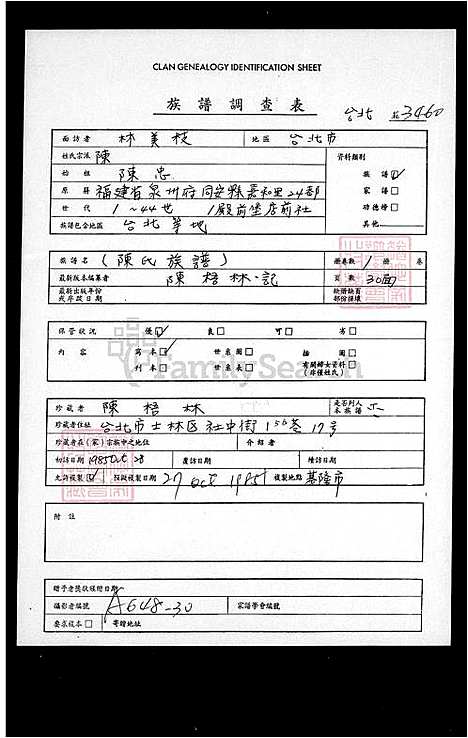 CLAN GENEALOGY IDENTIFICATION SHEET
族譜調查表 台北 3460
面訪者 林美枝 地區 台北市
姓氏宗派 陳 資料類別
始祖 陳忠 族譜☑
原籍 福建省泉州府同安縣嘉禾里24都 家譜□
世代 1~44世 殿前堡店前社 功德榜□
族譜包含地區 台北等地 其他
族譜名 (陳氏族譜) 冊卷數 1 冊 卷
最新版本編纂者 陳梧林記 頁數 30面
最新出版年份或序跋日期 缺損缺頁部份採填
保管狀況 優☑ 良□ 可□ 劣□
內容 寫本☑ 世系圖□ 插圖□
刊本□ 世系表□ 有關婦女資料□(非僅姓氏)
FamilySearch
珍藏者 陳梧林 是否列入本族譜
珍藏者住址 台北市士林區社中街156巷17号
珍藏者在(家)宗族中之地位 介紹者
初訪日期 1985 Oct 28 覆訪日期 續訪日期
允許複製☑ 擬複製日期 27 Oct 1985 複製地點 基隆市
附註
贈予者獎狀頒附日期
攝影者編號 A648-30 家譜學會編號
要求複本□ 寄贈地址